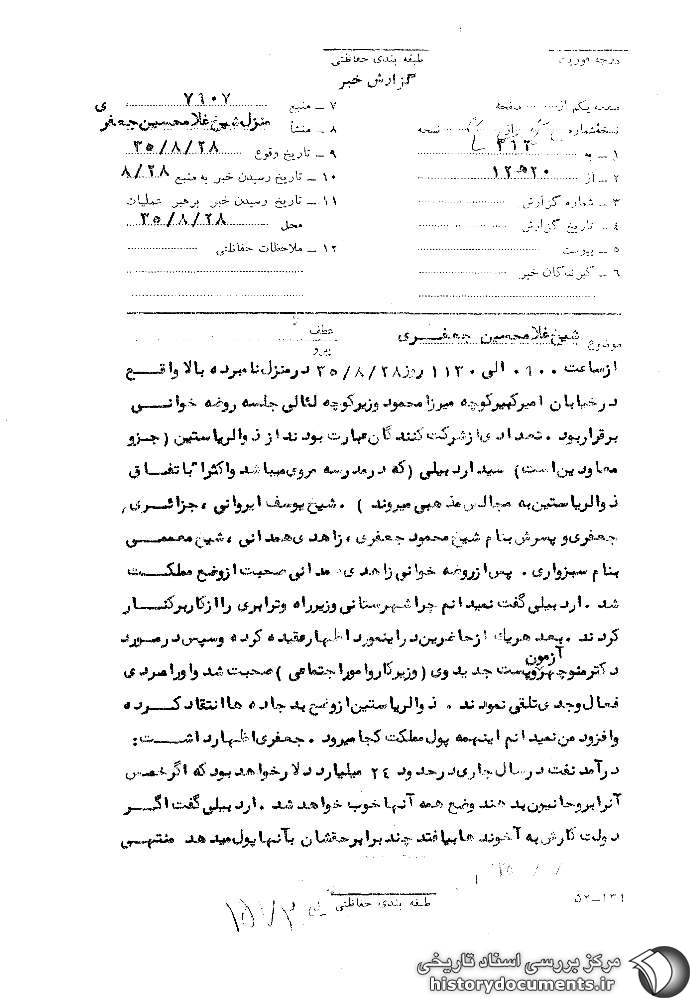 طبقه بندی حفاظتی
درجه فوریت
گزارش خبر
صفحه یکم از صفحه
نسخهٔ شماره نسخه
۱ ــ به ۳۱۲
۲ ــ از ۱۲ ه ۲۰
۳ ــ شماره گزارش
۴ ــ تاریخ گزارش
۵ ــ پیوست
۶ ــ گیرندگان خبر
۷ ــ منبع ۷۶۰۷
۸ ــ منشأ منزل شیخ غلامحسین جعفری
۹ ــ تاریخ وقوع ۳۵/۸/۲۸
۱۰ ــ تاریخ رسیدن خبر به منبع ۸/۲۸
۱۱ ــ تاریخ رسیدن خبر برهبر عملیات
محل ۳۵/۸/۲۸
۱۲ ــ ملاحظات حفاظتی
موضوع شیخ غلامحسین جعفری
عطف
پیرو
ازساعت ۰۹۰۰ الی ۱۱۳۰ روز ۳۵/۸/۲۸ درمنزل نامبرده بالا واقع
درخیابان امیرکبیرکوچه میرزا محمود وزیرکوچه لثالی جلسه روضه خوانی
برقراربود . تعدادی ازشرکت کنندگان عبارت بودند از ذوالریاستین (جزو
معاودین است) سید اردبیلی (که درمدرسه مروی میباشد واکثرا" باتفاق
ذوالریاستین به مجالس مذهبی میروند ) . شیخ یوسف ایروانی ، جزائری ,
جعفری و پسرش بنام شیخ محمود جعفری ، زاهدی همدانی ، شیخ معممی
بنام سبزواری . پس ازروضه خوانی زاهدی همدانی صحبت ازوضع مملکت
شد . اردبیلی گفت نمیدانم چرا شهرستانی وزیرراه وترابری را ازکاربرکنار
کردند . بعد هریك ازحاضرین دراینمورد اظهارعقیده کرده وسپس درمورد
دکترمنوچهر آزمون وپست جدید وی (وزیرکاروامور اجتماعی ) صحبت شد واورا مردی
فعال وجدی تلقی نمودند . ذوالریاستین ازوضع بد جاده ها انتقاد کرده
وافزود من نمیدانم اینهمه پول مملکت کجا میرود . جعفری اظهارداشت :
درآمد نفت درسال جاری درحدود ۲۴ میلیارد دلارخواهد بود که اگرخمس
آنرا بروحانیون بدهند وضع همه آنها خوب خواهد شد . اردبیلی گفت اگر
دولت کارش به آخوندها بیافتد چند برابرحقشان بآنها پول میدهد منتهی
طبقه بندی حفاظتی
۵۲-۱۳۱
مرکز بررسی اسناد تاریخی
historydocuments.ir